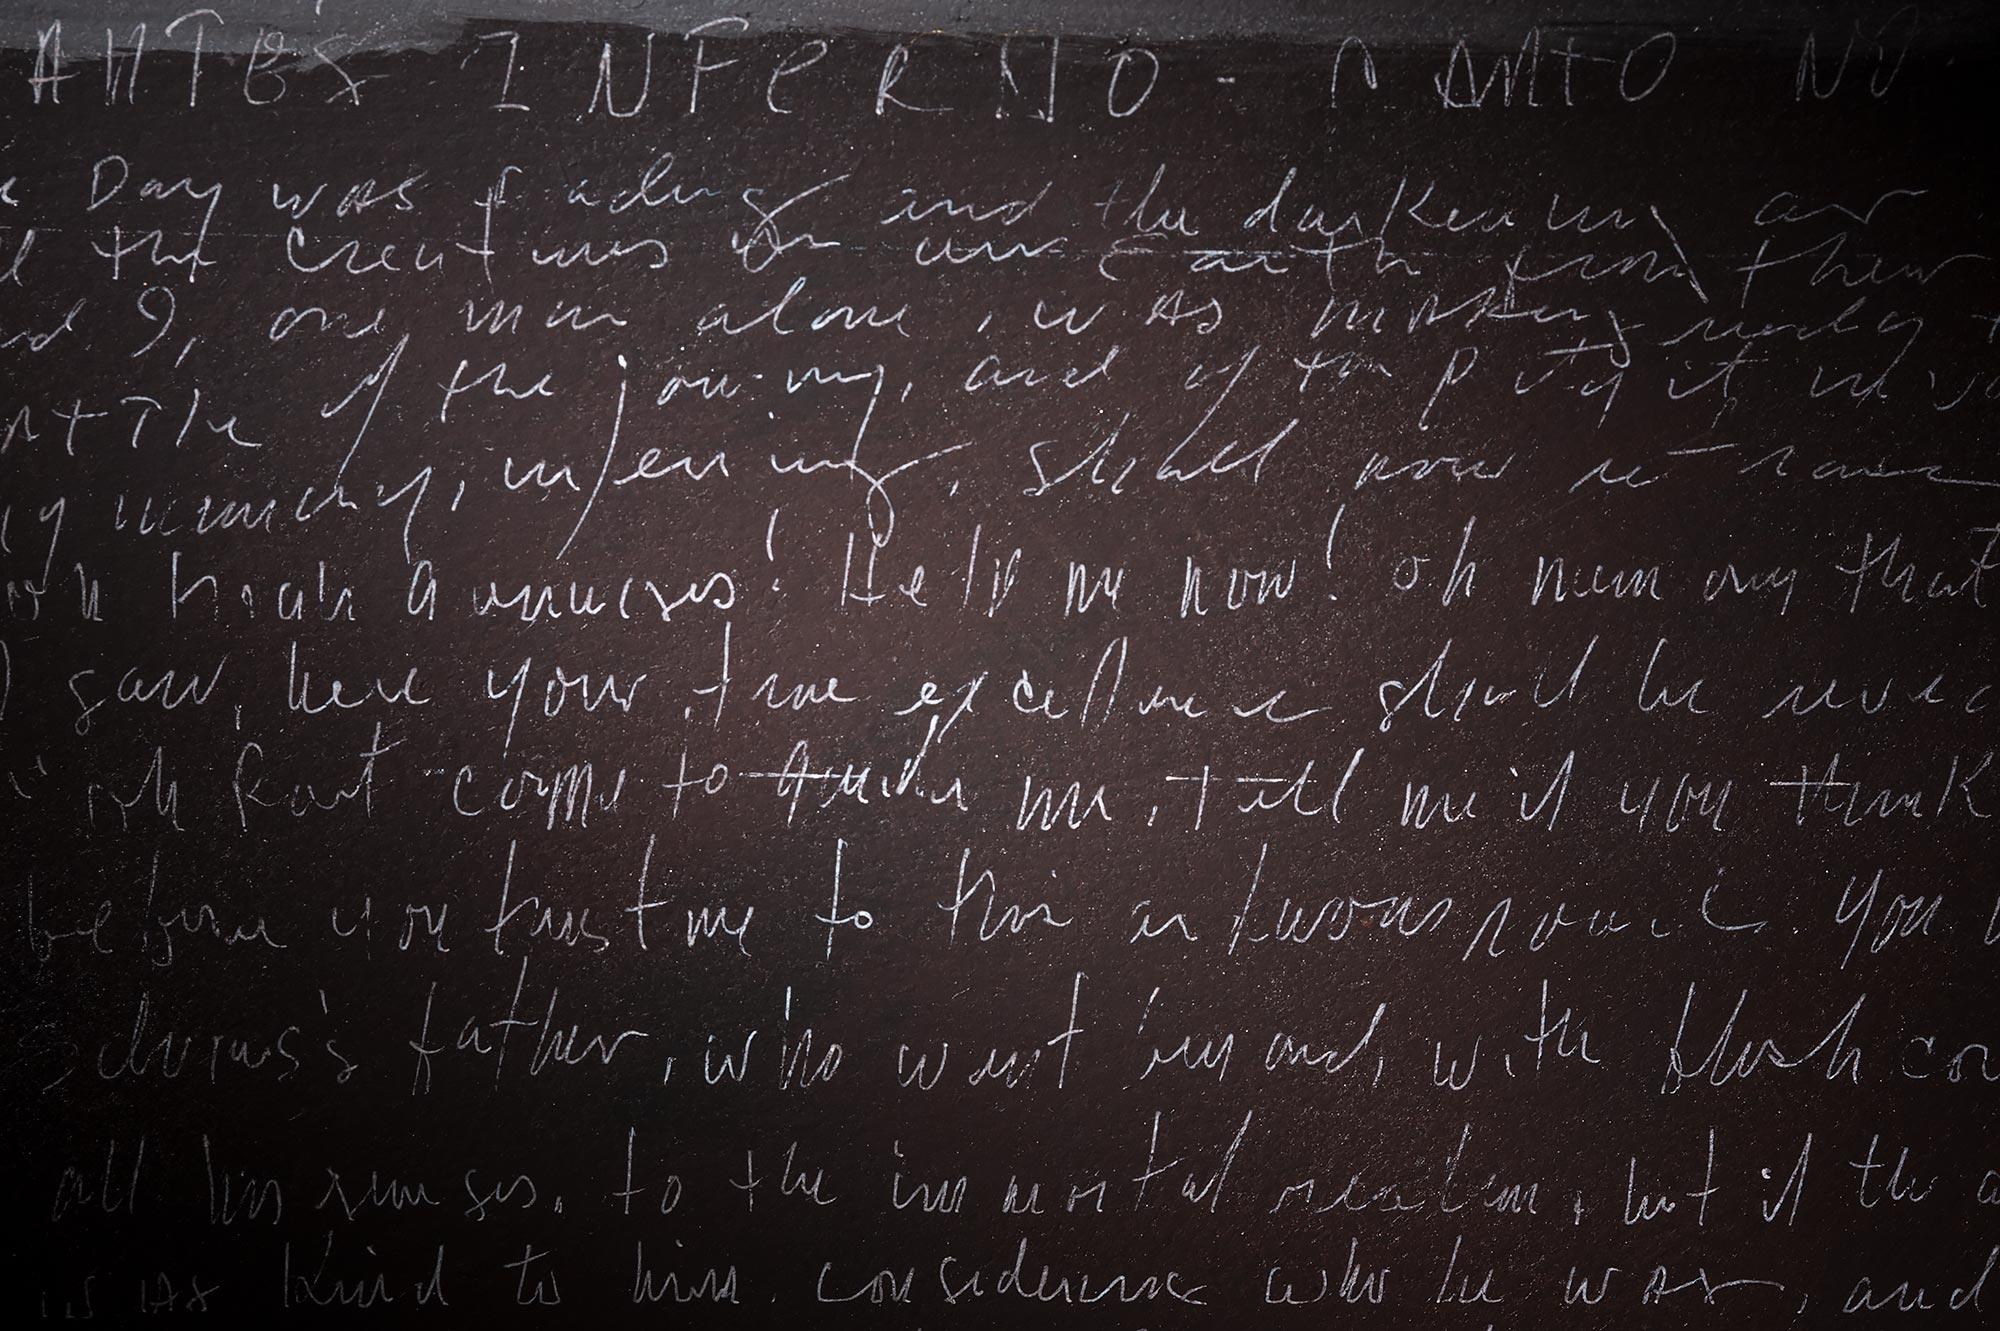 ANTES INFERNO - CANTO NO
Day was fading and the darkening air
the creatures on our earth from their
I, one man alone, was making ready
battle of the journey, and of the pity it involved
my memory, unerring, shall now retrace
high genius! Help me now! oh memory that
I saw, here your true excellence shall be
poet come to guide me, tell me if you think
before you trust me to this arduous you
Sylvius's father, who went beyond, with flesh
all his senses, to the immortal realm, but if the
is as kind to him considering who he was, and